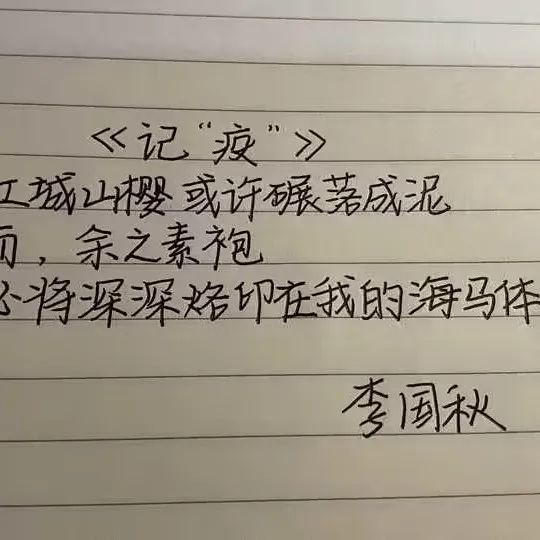 《记“疫”》
江城山樱或许碾落成泥
而，余之素袍
必将深深烙印在我的海马体
李国秋